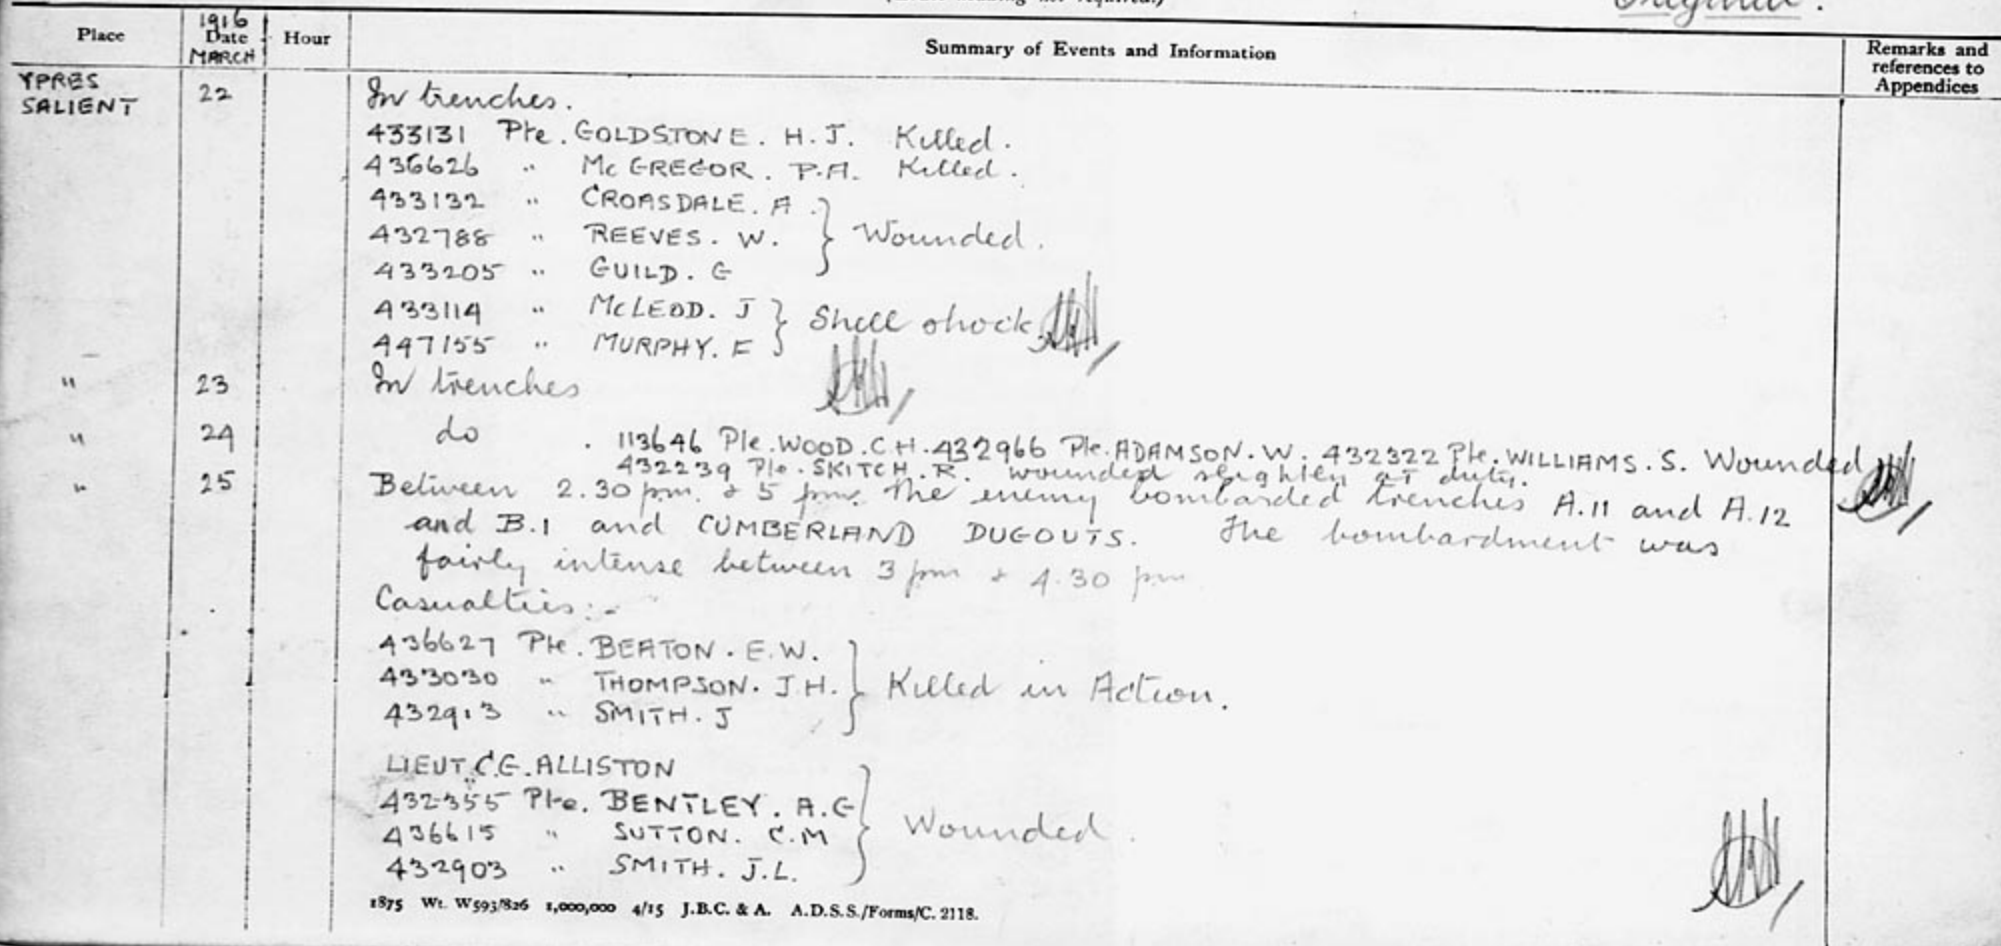 Original.
Place
1916
Date
MARCH
Hour
Summary of Events and Information
Remarks and
references to
Appendices
YPRES
SALIENT
22
In trenches.
433131 Pte. GOLDSTONE. H. J. Killed.
436626 " McGREGOR. P.A. Killed.
433132 " CROASDALE. A.
432788 " REEVES. W. } Wounded.
433205 " GUILD. G
433114 " McLEOD. J } Shell shock
447155 " MURPHY. F
" 23 In trenches
" 24 do . 113646 Pte. WOOD. C.H. 432966 Pte. ADAMSON. W. 432322 Pte. WILLIAMS. S. Wounded
432239 Pte. SKITCH. R. wounded slightly at duty.
" 25 Between 2.30 pm. & 5 pm. the enemy bombarded trenches A.11 and A.12
and B.1 and CUMBERLAND DUGOUTS. The bombardment was
fairly intense between 3 pm & 4.30 pm
Casualties:-
436627 Pte. BEATON. E.W.
433030 " THOMPSON. J.H. } Killed in Action.
432913 " SMITH. J
LIEUT. C.G. ALLISTON
432355 Pte. BENTLEY. A.G
436615 " SUTTON. C.M } Wounded.
432903 " SMITH. J.L.
1875 Wt. W593/826 1,000,000 4/15 J.B.C. & A. A.D.S.S./Forms/C. 2118.